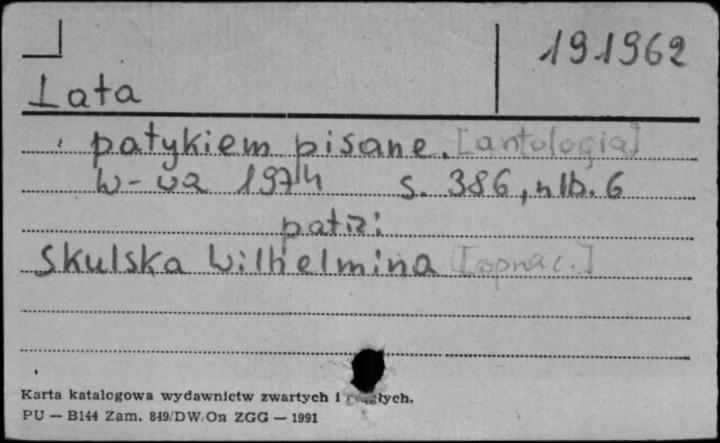 191962
Lata
patykiem pisane. [antologia]
W-wa 1974 s. 386, nlb. 6
patrz:
Skulska Wilhelmina [oprac.]
Karta katalogowa wydawnictw zwartych i ciągłych.
PU — B144 Zam. 849/DW/On ZGG — 1991